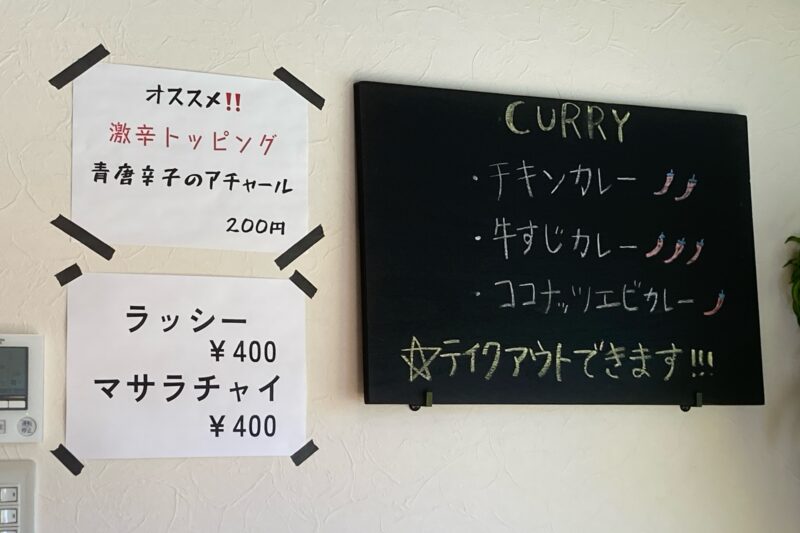 オススメ!!
激辛トッピング
青唐辛子のアチャール
200円
ラッシー
￥400
マサラチャイ
￥400
CURRY
・チキンカレー
・牛すじカレー
・ココナッツエビカレー
☆テイクアウトできます!!!